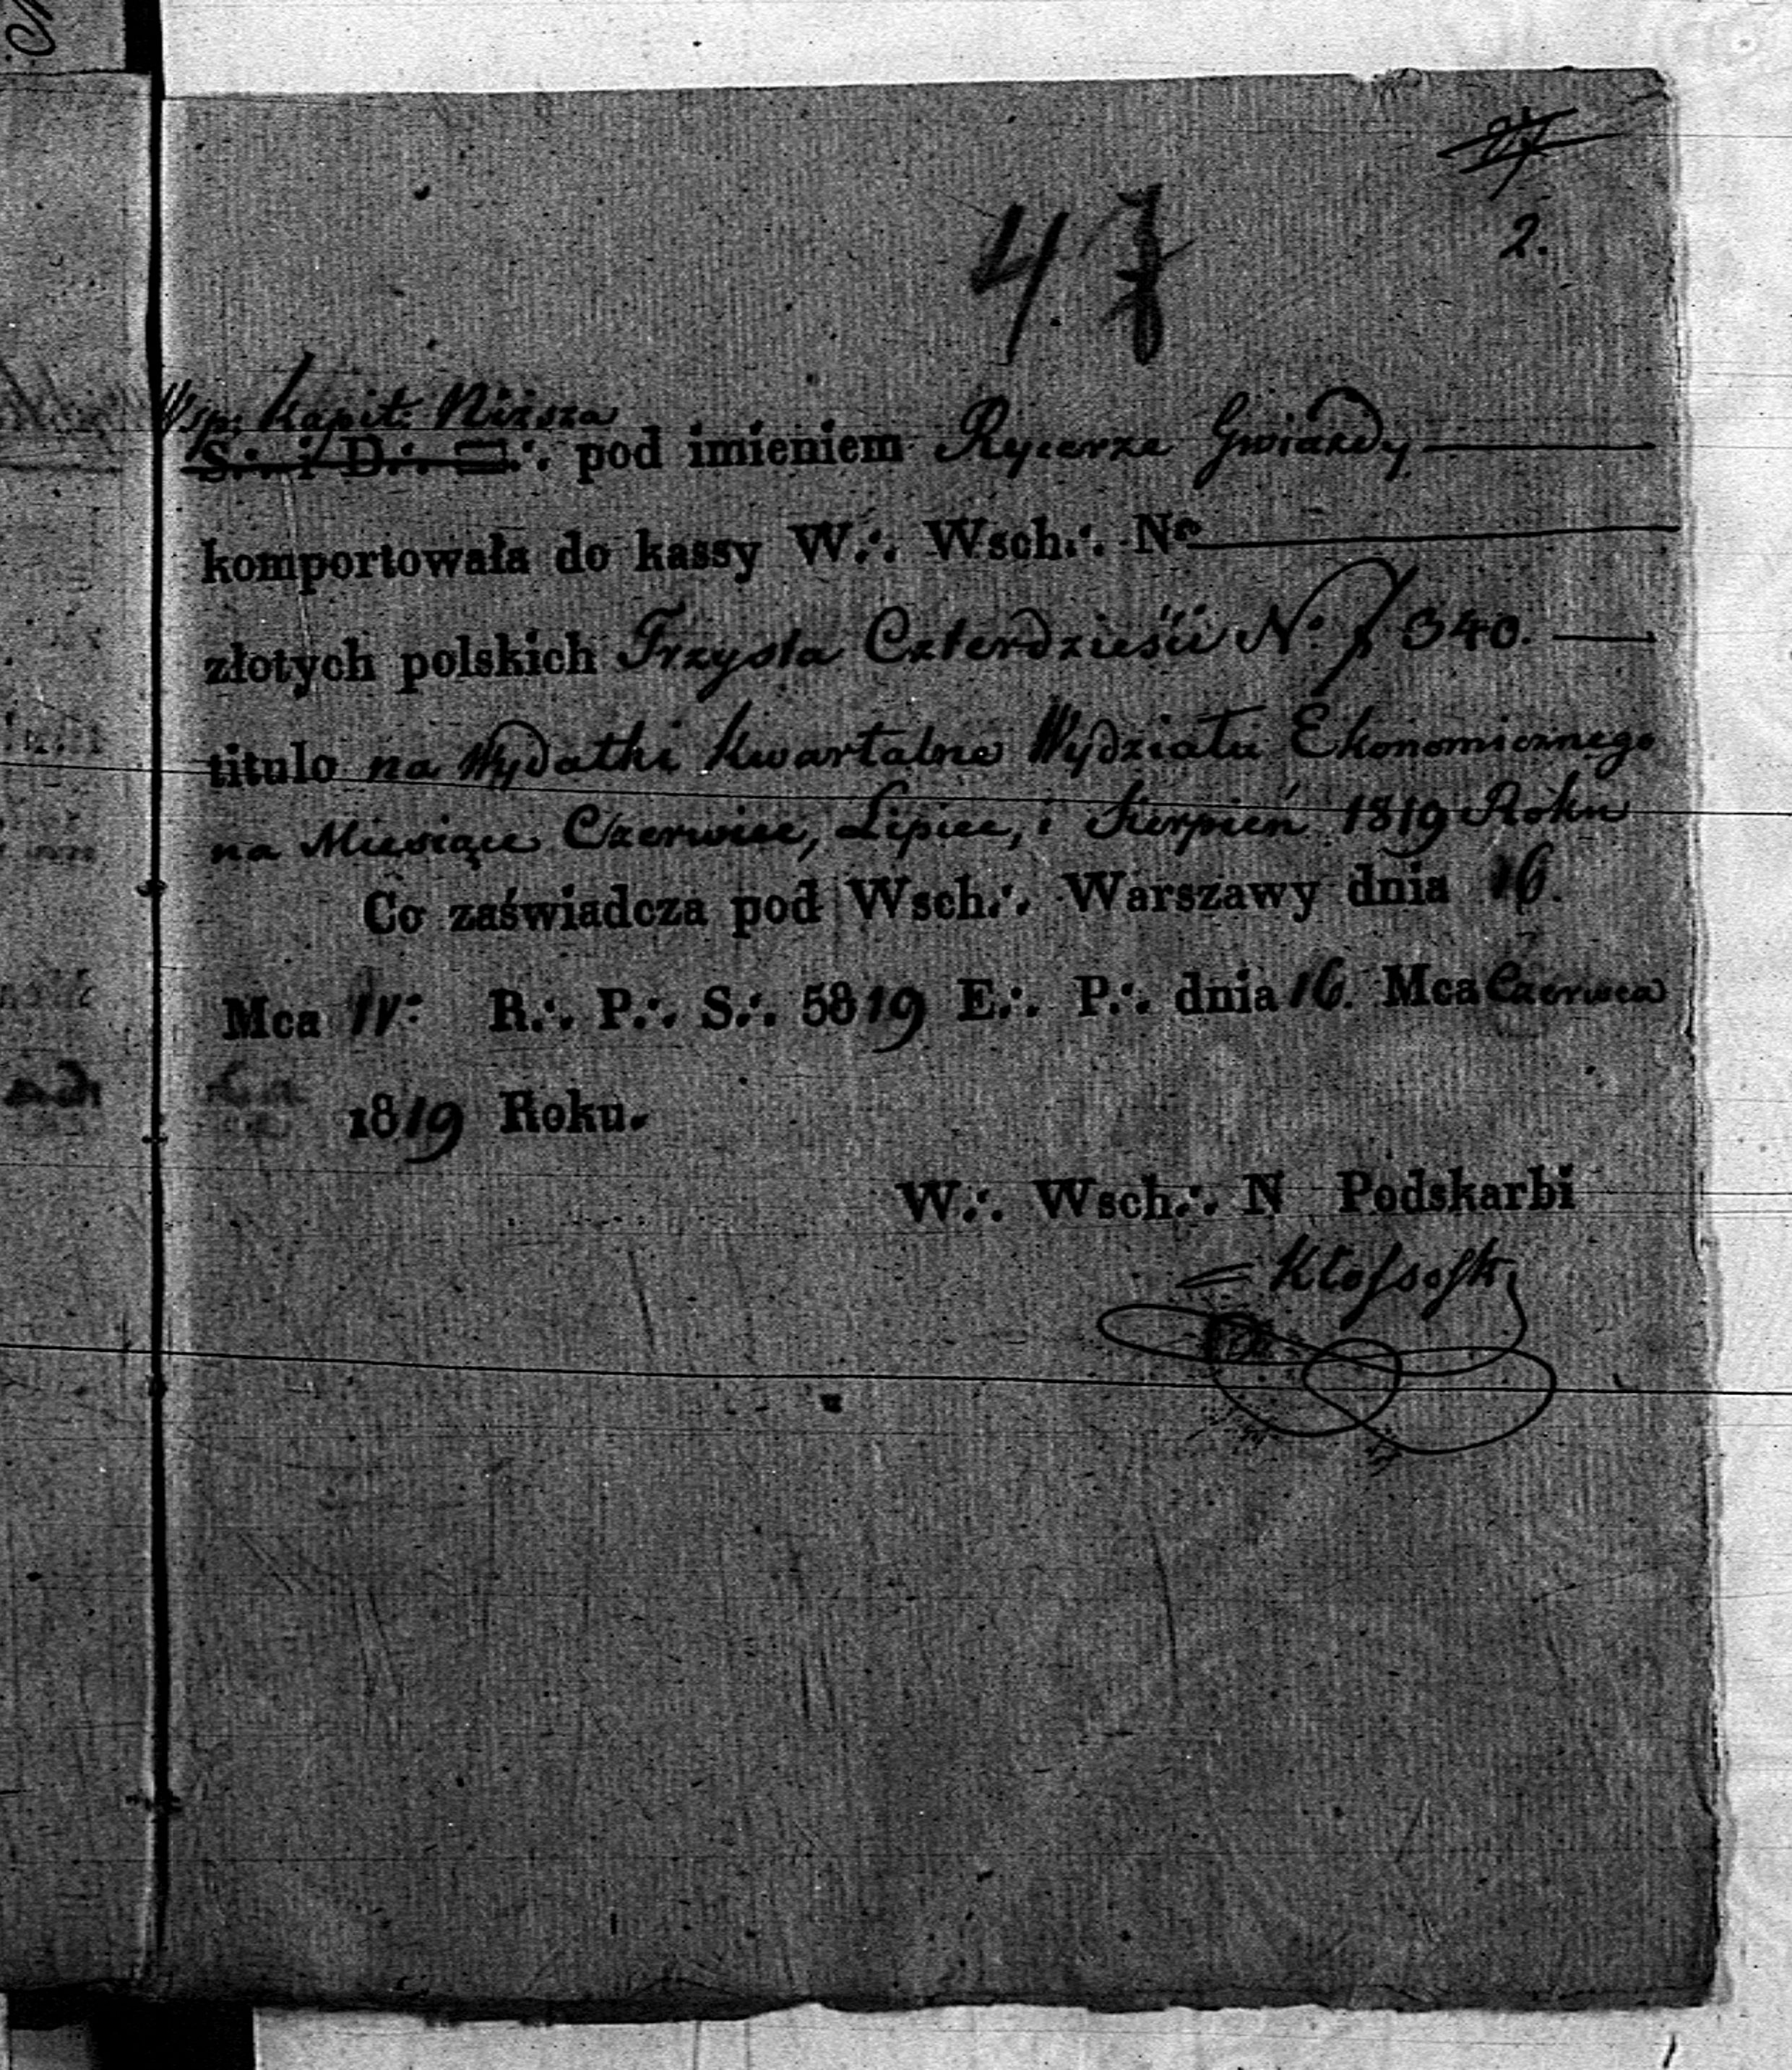 2.
4.
Wsp: Kapit: Niższa
S∴ i D∴ □∴ pod imieniem Rycerze Gwiazdy
komportowała do kassy W∴ Wsch∴ No
złotych polskich Trzysta Czterdzieści N. 340.
titulo na Wydatki Kwartalne Wydziału Ekonomicznego
na Miesiące Czerwiec, Lipiec, i Sierpień 1819 Roku
Co zaświadcza pod Wsch∴ Warszawy dnia 16.
Mca IV: R∴ P∴ S∴ 5819 E∴ P∴ dnia 16. Mca Czerwca
1819 Roku.
W∴ Wsch∴ N Podskarbi